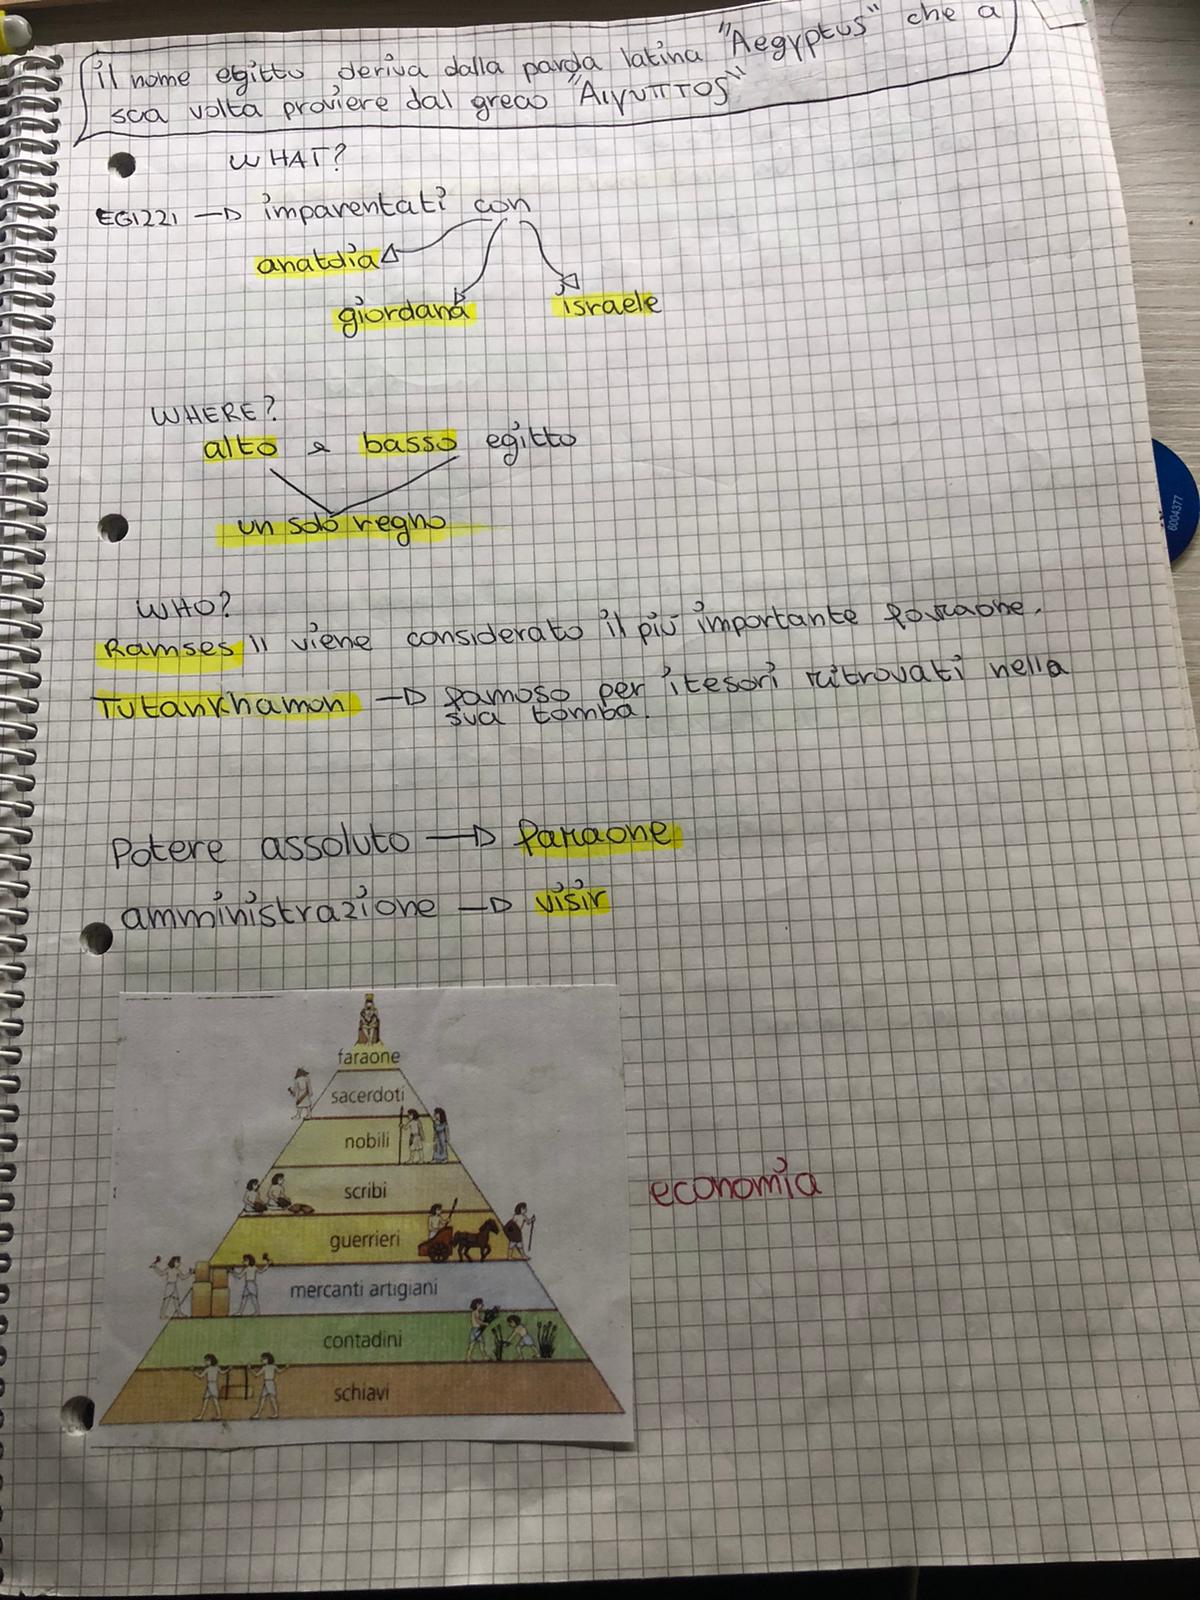 il nome egitto deriva dalla parola latina "Aegyptus" che a
sua volta proviere dal greco "Αιγυπτος"
WHAT?
EGIZZI → imparentati con
anatolia
giordana
israele
WHERE?
alto e basso egitto
un solo regno
WHO?
Ramses II viene considerato il più importante faraone.
Tutankhamon → famoso per i tesori ritrovati nella
sua tomba.
Potere assoluto → faraone
amministrazione → visir
faraone
sacerdoti
nobili
scribi
guerrieri
economia
mercanti artigiani
contadini
schiavi
6004377